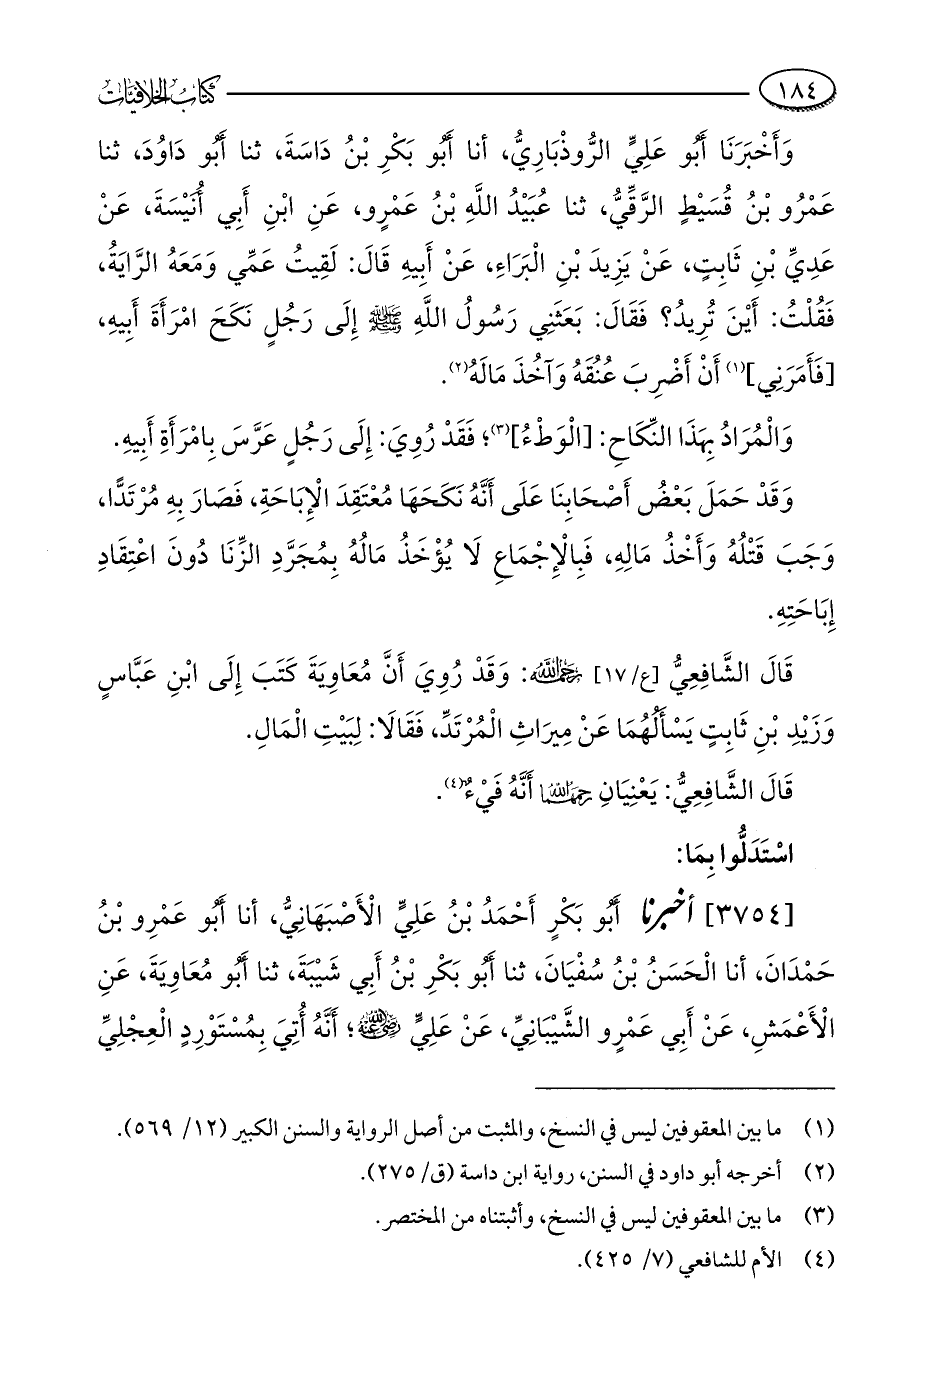 ١٨٤ كتاب الخلافيات
وَأَخْبَرَنَا أَبُو عَلِيٍّ الرُّوذْبَارِيُّ، أنا أَبُو بَكْرِ بْنُ دَاسَةَ، ثنا أَبُو دَاوُدَ، ثنا
عَمْرُو بْنُ قُسَيْطٍ الرَّقِّيُّ، ثنا عُبَيْدُ اللَّهِ بْنُ عَمْرٍو، عَنِ ابْنِ أَبِي أُنَيْسَةَ، عَنْ
عَدِيِّ بْنِ ثَابِتٍ، عَنْ يَزِيدَ بْنِ الْبَرَاءِ، عَنْ أَبِيهِ قَالَ: لَقِيتُ عَمِّي وَمَعَهُ الرَّايَةُ،
فَقُلْتُ: أَيْنَ تُرِيدُ؟ فَقَالَ: بَعَثَنِي رَسُولُ اللَّهِ ﷺ إِلَى رَجُلٍ نَكَحَ امْرَأَةَ أَبِيهِ،
[فَأَمَرَنِي](١) أَنْ أَضْرِبَ عُنُقَهُ وَآخُذَ مَالَهُ(٢).
وَالْمُرَادُ بِهَذَا النِّكَاحِ: [الْوَطْءُ](٣)؛ فَقَدْ رُوِيَ: إِلَى رَجُلٍ عَرَّسَ بِامْرَأَةِ أَبِيهِ.
وَقَدْ حَمَلَ بَعْضُ أَصْحَابِنَا عَلَى أَنَّهُ نَكَحَهَا مُعْتَقِدَ الْإِبَاحَةِ، فَصَارَ بِهِ مُرْتَدًّا،
وَجَبَ قَتْلُهُ وَأَخْذُ مَالِهِ، فَبِالْإِجْمَاعِ لَا يُؤْخَذُ مَالُهُ بِمُجَرَّدِ الزِّنَا دُونَ اعْتِقَادِ
إِبَاحَتِهِ.
قَالَ الشَّافِعِيُّ [ع/١٧] رَحِمَهُ اللَّهُ: وَقَدْ رُوِيَ أَنَّ مُعَاوِيَةَ كَتَبَ إِلَى ابْنِ عَبَّاسٍ
وَزَيْدِ بْنِ ثَابِتٍ يَسْأَلُهُمَا عَنْ مِيرَاثِ الْمُرْتَدِّ، فَقَالَا: لِبَيْتِ الْمَالِ.
قَالَ الشَّافِعِيُّ: يَعْنِيَانِ رَحِمَهُمَا اللَّهُ أَنَّهُ فَيْءٌ(٤).
اسْتَدَلُّوا بِمَا:
[٣٧٥٤] أخبرنا أَبُو بَكْرٍ أَحْمَدُ بْنُ عَلِيٍّ الْأَصْبَهَانِيُّ، أنا أَبُو عَمْرِو بْنُ
حَمْدَانَ، أنا الْحَسَنُ بْنُ سُفْيَانَ، ثنا أَبُو بَكْرِ بْنُ أَبِي شَيْبَةَ، ثنا أَبُو مُعَاوِيَةَ، عَنِ
الْأَعْمَشِ، عَنْ أَبِي عَمْرٍو الشَّيْبَانِيِّ، عَنْ عَلِيٍّ رَضِيَ اللَّهُ عَنْهُ؛ أَنَّهُ أُتِيَ بِمُسْتَوْرِدٍ الْعِجْلِيِّ
(١) ما بين المعقوفين ليس في النسخ، والمثبت من أصل الرواية والسنن الكبير (١٢/ ٥٦٩).
(٢) أخرجه أبو داود في السنن، رواية ابن داسة (ق/ ٢٧٥).
(٣) ما بين المعقوفين ليس في النسخ، وأثبتناه من المختصر.
(٤) الأم للشافعي (٧/ ٤٢٥).